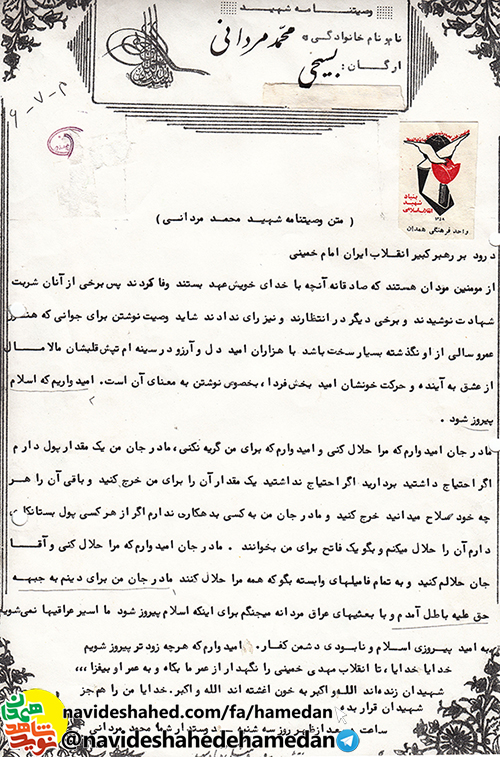 وصیتنامه شهید
نام و نام خانوادگی : محمد مردانی
ارگان : بسیجی
۶-۷-۳
بنیاد
شهید
انقلاب اسلامی
واحد فرهنگی همدان
( متن وصیتنامه شهید محمد مردانی )
درود بر رهبر کبیر انقلاب ایران امام خمینی
از مومنین مردان هستند که صادقانه آنچه با خدای خویش عهد بستند وفا کردند پس برخی از آنان شربت
شهادت نوشیدند و برخی دیگر در انتظارند و نیز رای ندادند شاید وصیت نوشتن برای جوانی که هنوز
عمرو سالی از او نگذشته بسیار سخت باشد با هزاران امید دل و آرزو در سینه ام تپش قلبشان مالامال
از عشق به آینده و حرکت خونشان امید بخش فردا ، بخصوص نوشتن به معنای آن است . امیدواریم که اسلام
پیروز شود .
مادر جان امیدوارم که مرا حلال کنی و امیدوارم که برای من گریه نکنی ، مادر جان من یک مقدار پول دارم
اگر احتیاج داشتید بردارید اگر احتیاج نداشتید یک مقدار آن را برای من خرج کنید و باقی آن را هر
چه خود سلاح میدانید خرج کنید و مادر جان من به کسی بدهکاری ندارم اگر از هر کسی پول بستانکار
دارم آن را حلال میکنم و بگو یک فاتح برای من بخوانند . مادر جان امیدوارم که مرا حلال کنی و آقا
جان حلالم کنید و به تمام فامیلهای وابسته بگو که همه مرا حلال کنند مادر جان من برای دینم به جبهه
حق علیه باطل آمدم و با بعثیهای عراق مردانه میجنگم برای اینکه اسلام پیروز شود ما اسیر عراقیها نمی‌شویم
به امید پیروزی اسلام و نابودی دشمن کفار . امیدوارم که هرچه زودتر پیروز شویم
خدایا خدایا ، تا انقلاب مهدی خمینی را نگهدار از عمر ما بکاه و به عمر او بیفزا ،،،
شهیدان زنده‌اند الله و اکبر به خون اغشته اند الله و اکبر . خدایا من را هم جز
شهیدان قرار بده
ساعت بعد از ظهر روز سه شنبه دوستدار شما محمد مردانی
نوید شاهد همدان
navideshahed.com/fa/hamedan
@navideshahedehamedan